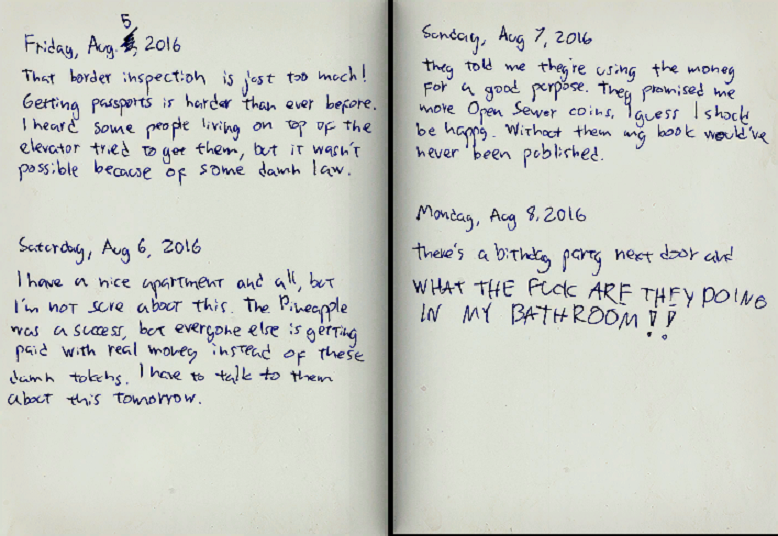 5
Friday, Aug. , 2016
That border inspection is just too much!
Getting passports is harder than ever before.
I heard some people living on top of the
elevator tried to get them, but it wasn't
possible because of some damn law.
Saturday, Aug 6, 2016
I have a nice apartment and all, but
I'm not sure about this. The Pineapple
was a success, but everyone else is getting
paid with real money instead of these
damn tokens. I have to talk to them
about this tomorrow.
Sunday, Aug 7, 2016
they told me they're using the money
for a good purpose. They promised me
more Open Sewer coins, I guess I should
be happy. Without them my book would've
never been published.
Monday, Aug 8, 2016
there's a bithday party next door and
WHAT THE FUCK ARE THEY DOING
IN MY BATHROOM!!